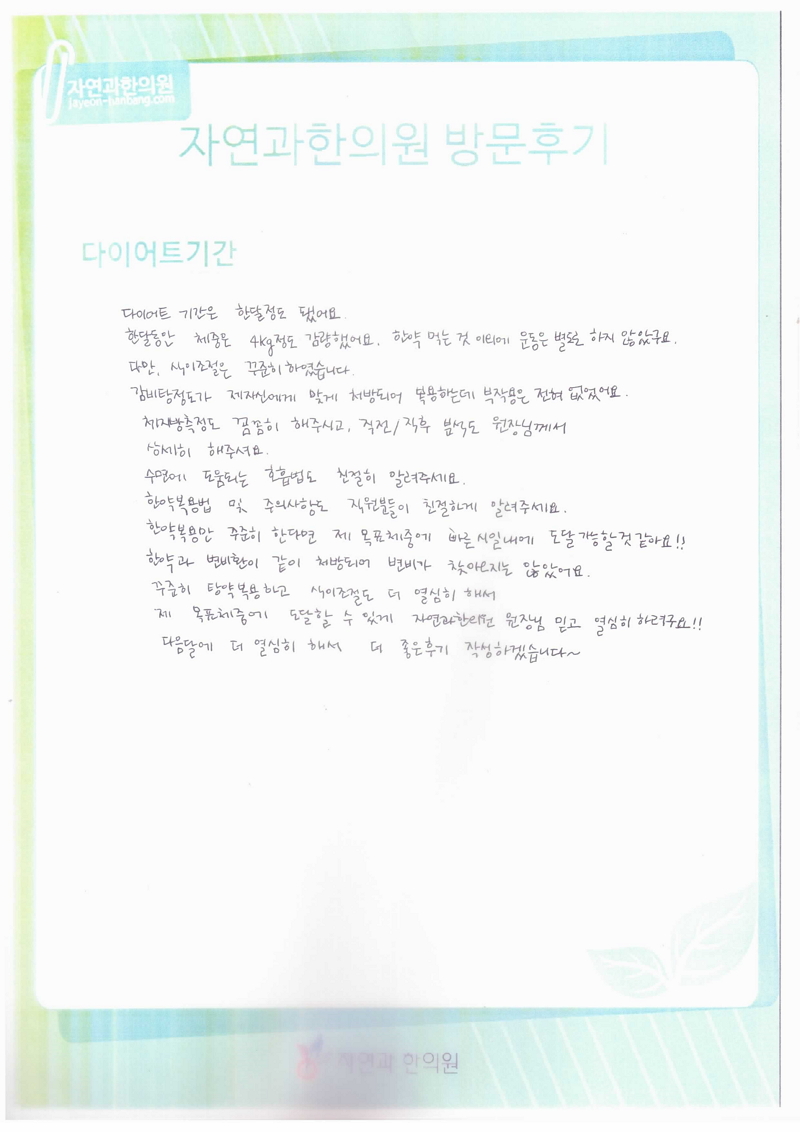 자연과한의원
jayeon-hanbang.com
자연과한의원 방문후기
다이어트기간
다이어트 기간은 한달정도 됐어요.
한달동안 체중은 4kg정도 감량했어요. 한약 먹는 것 이외에 운동은 별도로 하지 않았구요.
다만, 식이조절은 꾸준히 하였습니다.
감비탕정도가 제자신에게 맞게 처방되어 복용하는데 부작용은 전혀 없었어요.
체지방측정도 꼼꼼히 해주시고, 직전/직후 분석도 원장님께서
상세히 해주셔요.
수면에 도움되는 호흡법도 친절히 알려주세요.
한약복용법 및 주의사항도 직원분들이 친절하게 알려주세요.
한약복용만 꾸준히 한다면 제 목표체중에 빠른시일내에 도달 가능할것 같아요!!
한약과 변비환이 같이 처방되어 변비가 찾아오지는 않았어요.
꾸준히 탕약복용하고 식이조절도 더 열심히 해서
제 목표체중에 도달할 수 있게 자연과한의원 원장님 믿고 열심히 하려구요!!
다음달에 더 열심히 해서 더 좋은후기 작성하겠습니다~
자연과 한의원